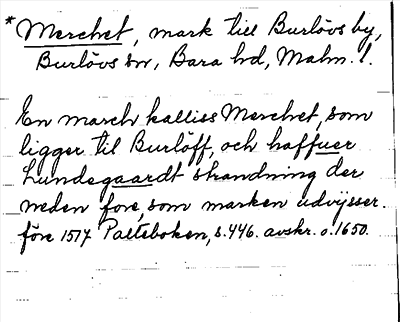 * Merchet, mark till Burlövs by,
Burlövs sn, Bara hd, Malm. l.
En march kalliss Merchet, som
ligger til Burlöff, och haffuer
Lundegaardt strandning der
neden fore, som marken udvÿsser.
före 1517 Palteboken, s. 446. avskr. o. 1650.